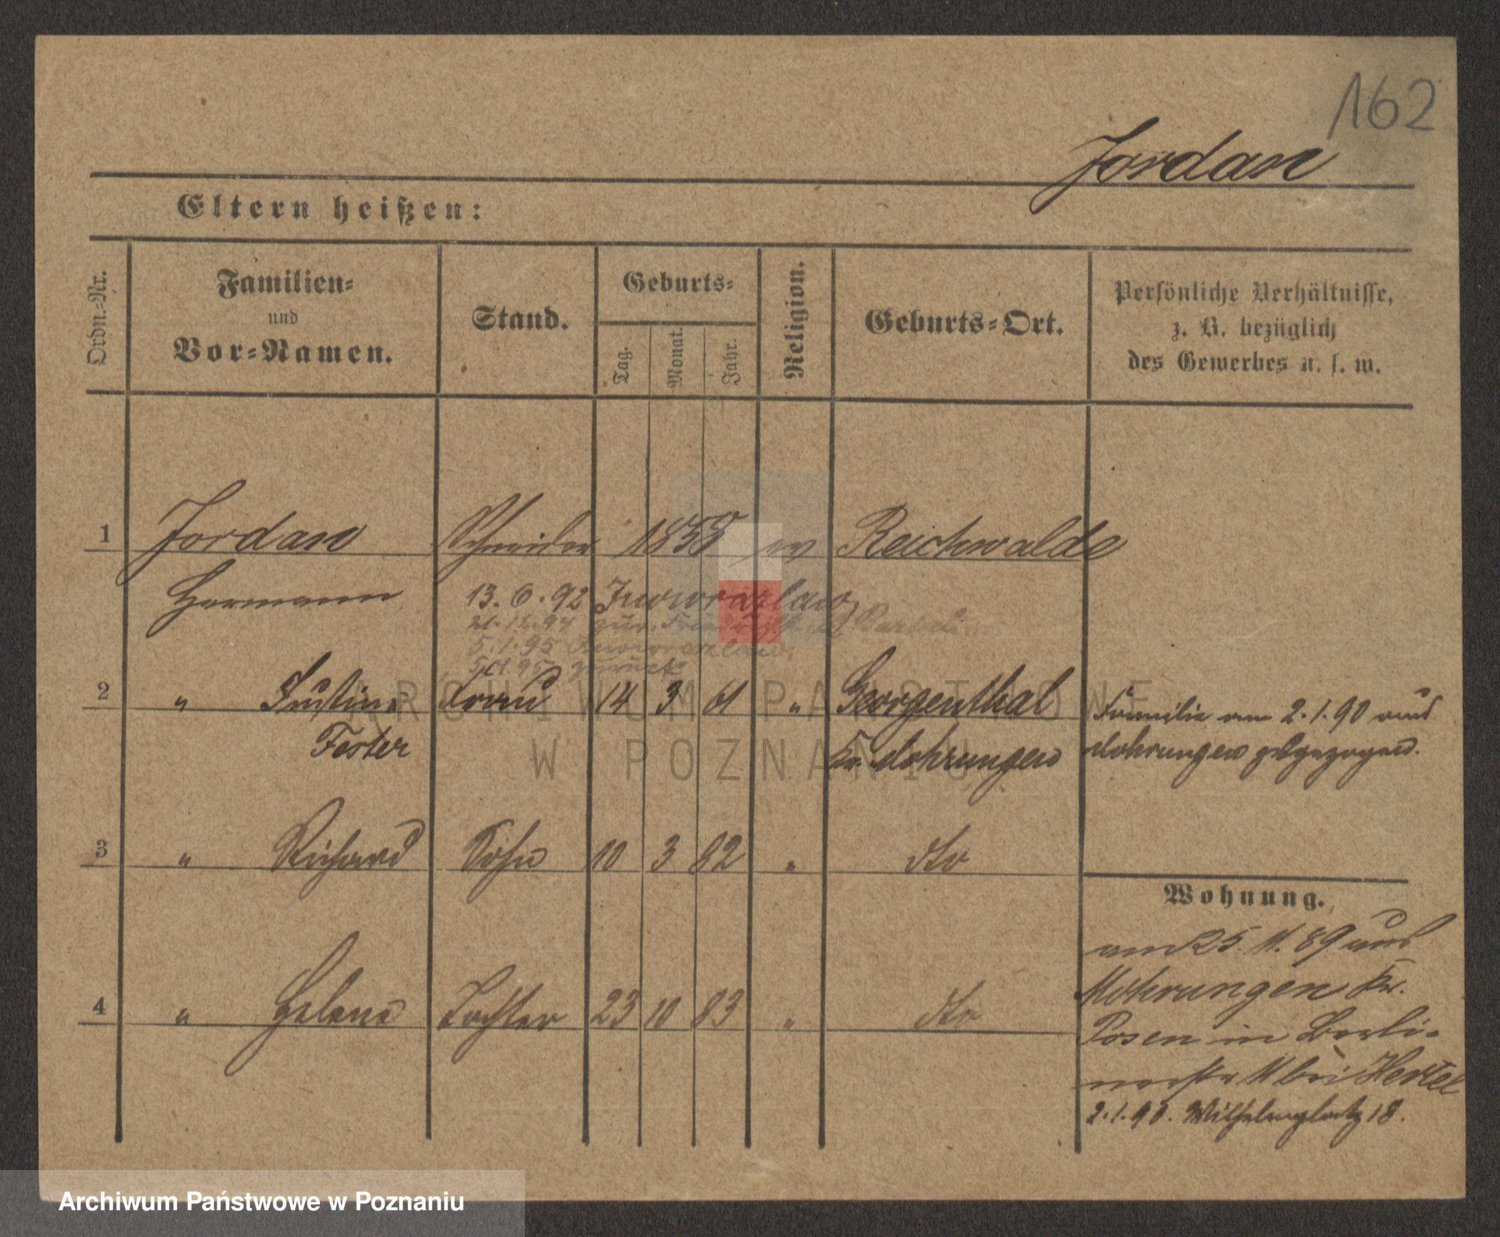 162
Jordan
Eltern heißen:
Ordn.-Nr.
Familien-
und
Vor-Namen.
Stand.
Geburts-
Tag.
Monat.
Jahr.
Religion.
Geburts-Ort.
Persönliche Verhältnisse,
z. B. bezüglich
des Gewerbes u. s. w.
1 Jordan Schneider 1855 ev Reichwalde
Hermann 13. 6. 92 Inowrazlaw
21. 12. 94 zur.
5. 1. 95 Inowrazlaw
5/1 95 zurück
2 " Justine Frau 14 3 61 " Georgenthal
Fester Kr. Mohrungen
Familie am 2. 1. 90 aus
Mohrungen zugezogen.
3 " Richard Sohn 10 3 82 " dto
4 " Helene Tochter 23 10 83 " dto
Wohnung.
am 25. 11. 89 aus
Mohrungen Kr.
Posen in Berli-
nerstr 11 bei Hertel
2. 1. 90. Wilhelmsplatz 18.
ARCHIWUM PAŃSTWOWE
W POZNANIU
Archiwum Państwowe w Poznaniu